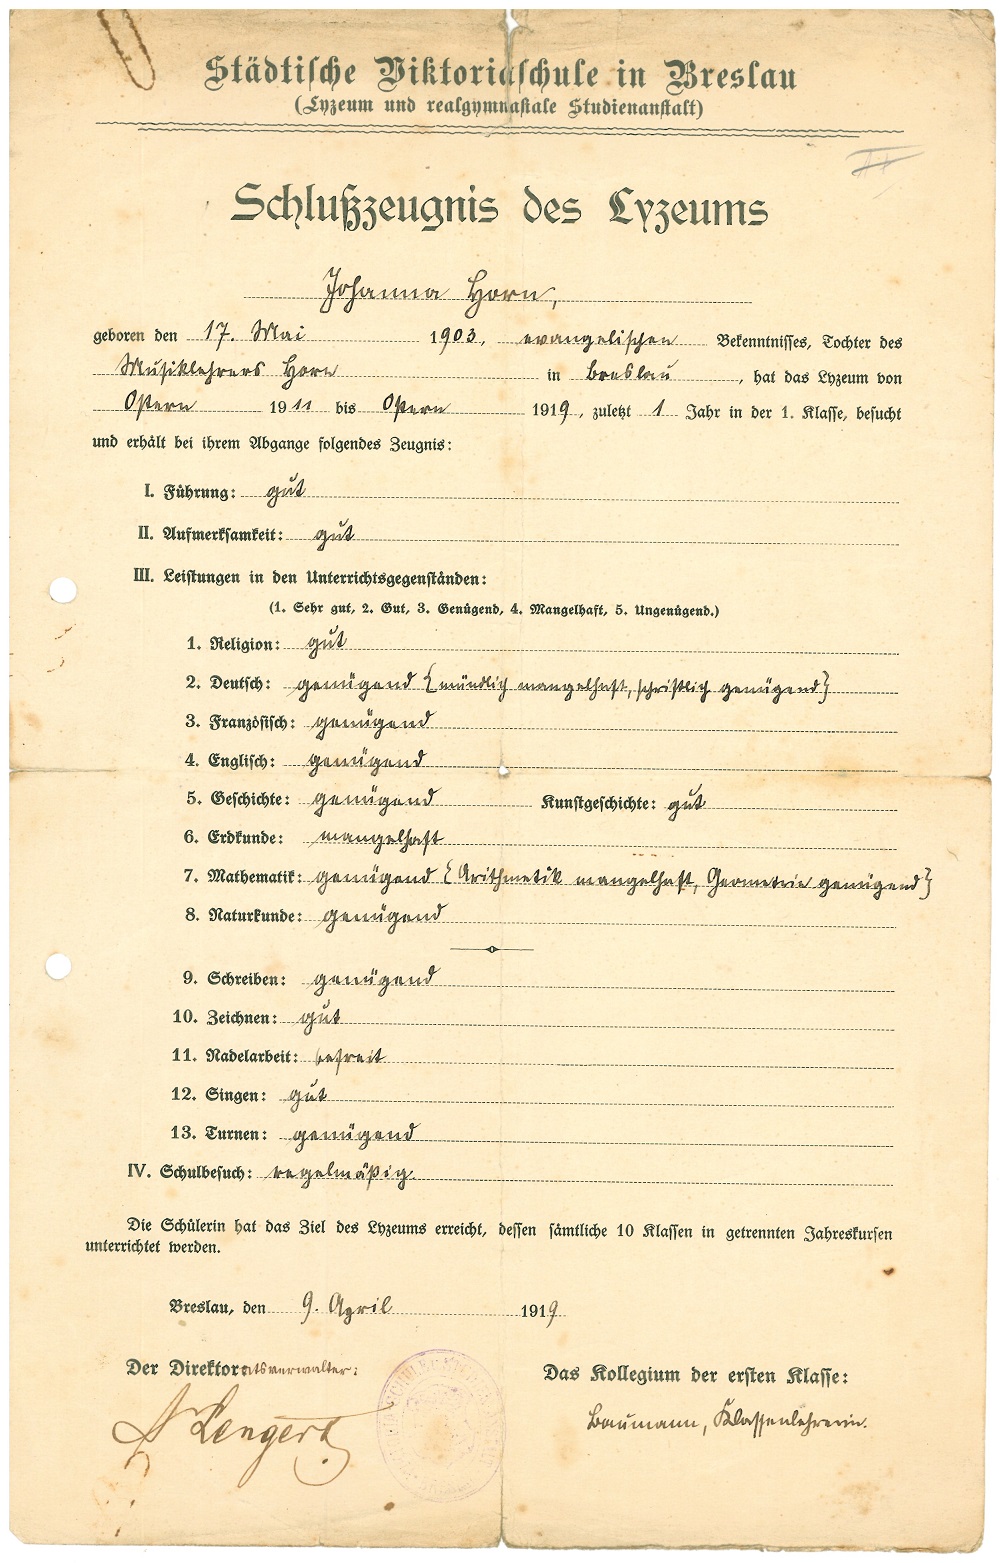 Städtische Viktoriaschule in Breslau
(Lyzeum und realgymnasiale Studienanstalt)
Schlußzeugnis des Lyzeums
Johanna Horn,
geboren den 17. Mai 1903, evangelischen Bekenntnisses, Tochter des
Musiklehrers Horn in Breslau, hat das Lyzeum von
Ostern 1911 bis Ostern 1919, zuletzt 1 Jahr in der 1. Klasse, besucht
und erhält bei ihrem Abgange folgendes Zeugnis:
I. Führung: gut
II. Aufmerksamkeit: gut
III. Leistungen in den Unterrichtsgegenständen:
(1. Sehr gut, 2. Gut, 3. Genügend, 4. Mangelhaft, 5. Ungenügend.)
1. Religion: gut
2. Deutsch: genügend {mündlich mangelhaft, schriftlich genügend}
3. Französisch: genügend
4. Englisch: genügend
5. Geschichte: genügend Kunstgeschichte: gut
6. Erdkunde: mangelhaft
7. Mathematik: genügend {Arithmetik mangelhaft, Geometrie genügend}
8. Naturkunde: genügend
9. Schreiben: genügend
10. Zeichnen: gut
11. Nadelarbeit: befreit
12. Singen: gut
13. Turnen: genügend
IV. Schulbesuch: regelmäßig.
Die Schülerin hat das Ziel des Lyzeums erreicht, dessen sämtliche 10 Klassen in getrennten Jahreskursen
unterrichtet werden.
Breslau, den 9. April 1919
Der Direktoratsverwalter: Das Kollegium der ersten Klasse:
Lengert Baumann, Klassenlehrerin.